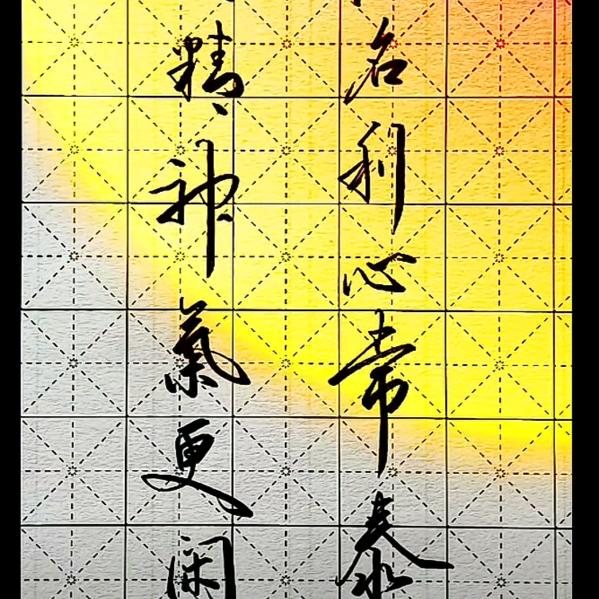 名利心常泰
精神氣更闲